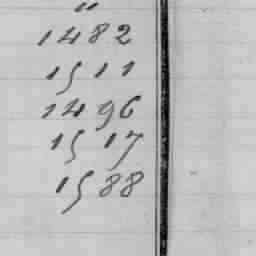 "
1482
1511
1496
1517
1588